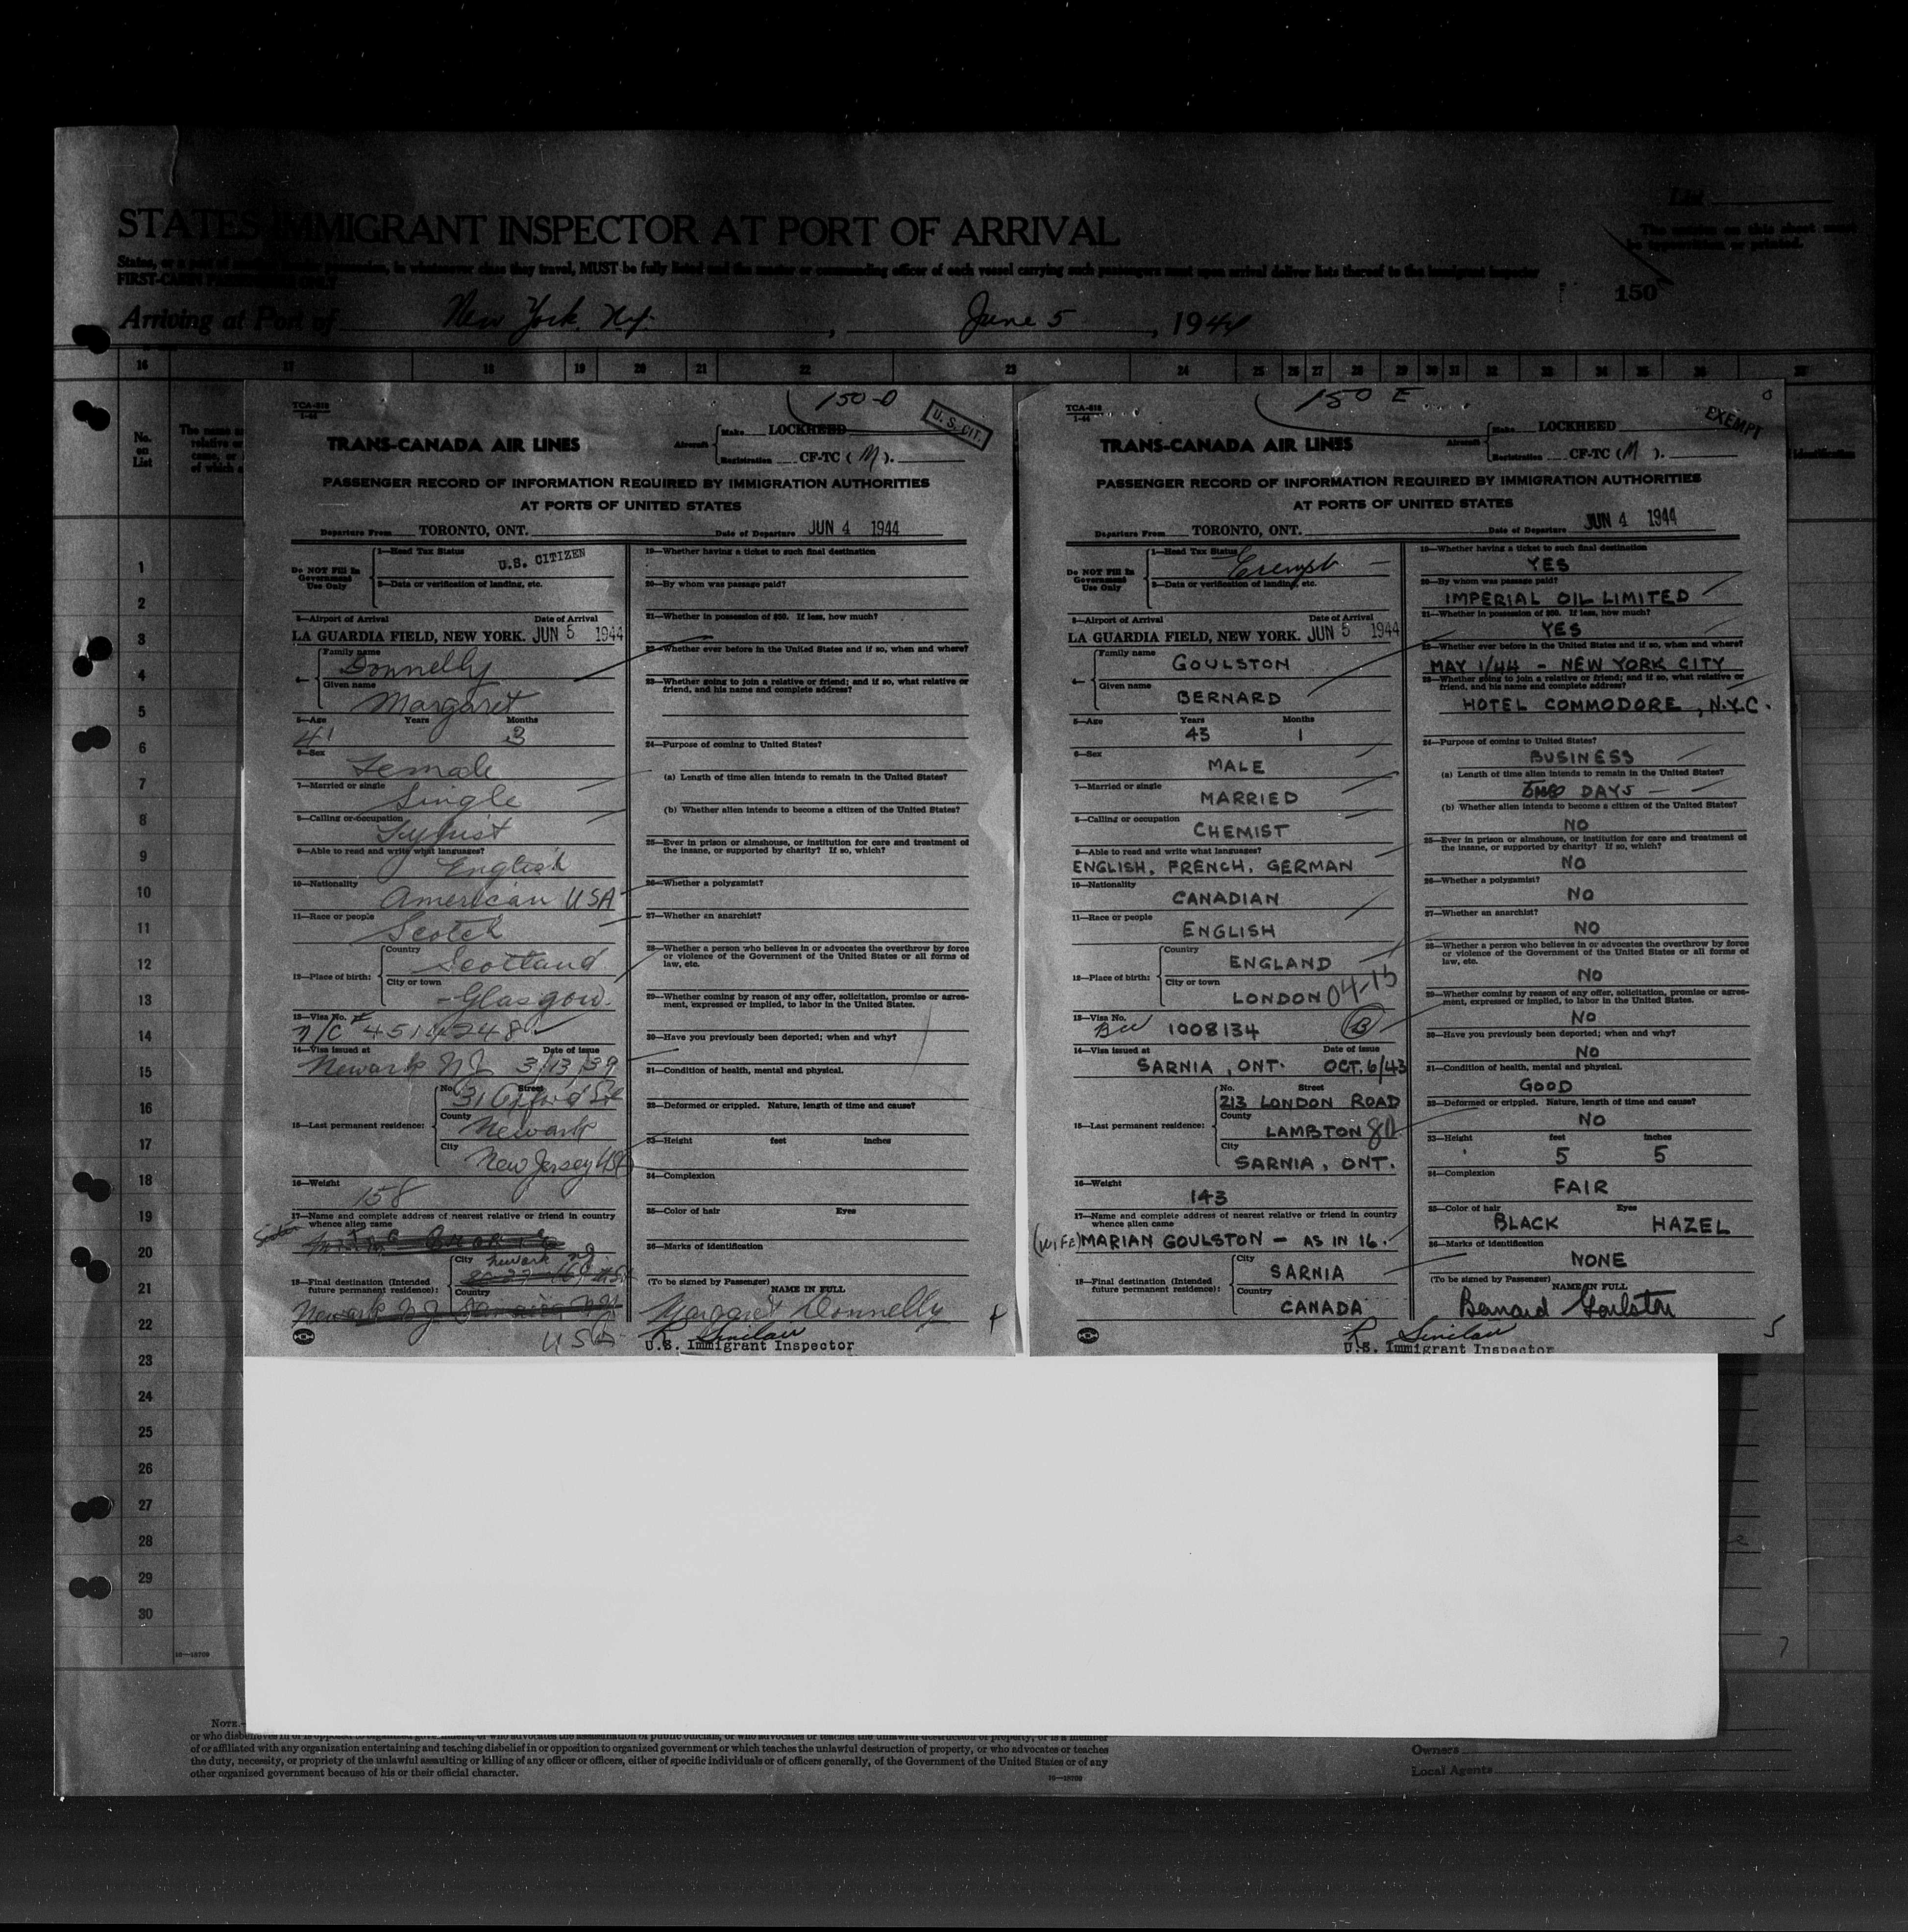 STATES IMMIGRANT INSPECTOR AT PORT OF ARRIVAL
List
The entries on this sheet must
be typewritten or printed.
FIRST-CABIN PASSENGERS ONLY
150
Arriving at Port of New York, N.Y. , June 5 , 1944
16 17 18 19 20 21 22 23 24 25 26 27 28 29 30 31 32 33 34 35 36
No.
on
List
1
2
3
4
5
6
7
8
9
10
11
12
13
14
15
16
17
18
19
20
21
22
23
24
25
26
27
28
29
30
16—18709
TCA-818
1-44
150-D
U. S. CIT.
TRANS-CANADA AIR LINES
Aircraft
Make LOCKHEED
Registration CF-TC ( M ).
PASSENGER RECORD OF INFORMATION REQUIRED BY IMMIGRATION AUTHORITIES
AT PORTS OF UNITED STATES
Departure From TORONTO, ONT. Date of Departure JUN 4 1944
Do NOT Fill In
Government
Use Only
1—Head Tax Status
U.S. CITIZEN
2—Data or verification of landing, etc.
3—Airport of Arrival Date of Arrival
LA GUARDIA FIELD, NEW YORK. JUN 5 1944
4—
Family name
Donnelly
Given name
Margaret
5—Age Years Months
41 3
6—Sex
Female
7—Married or single
Single
8—Calling or occupation
9—Able to read and write what languages?
English
10—Nationality
American USA
11—Race or people
Scotch
12—Place of birth:
Country
Scotland
City or town
Glasgow.
13—Visa No.
14—Visa issued at Date of issue
Newark NJ 3/13/39
15—Last permanent residence:
No. Street
County
Newark
City
New Jersey USA
16—Weight
158
17—Name and complete address of nearest relative or friend in country
whence alien came
18—Final destination (Intended
future permanent residence):
City Newark NJ
Country
Newark NJ
USA
19—Whether having a ticket to such final destination
20—By whom was passage paid?
21—Whether in possession of $50. If less, how much?
22—Whether ever before in the United States and if so, when and where?
23—Whether going to join a relative or friend; and if so, what relative or
friend, and his name and complete address?
24—Purpose of coming to United States?
(a) Length of time alien intends to remain in the United States?
(b) Whether alien intends to become a citizen of the United States?
25—Ever in prison or almshouse, or institution for care and treatment of
the insane, or supported by charity? If so, which?
26—Whether a polygamist?
27—Whether an anarchist?
28—Whether a person who believes in or advocates the overthrow by force
or violence of the Government of the United States or all forms of
law, etc.
29—Whether coming by reason of any offer, solicitation, promise or agree-
ment, expressed or implied, to labor in the United States.
30—Have you previously been deported; when and why?
31—Condition of health, mental and physical.
32—Deformed or crippled. Nature, length of time and cause?
33—Height feet inches
34—Complexion
35—Color of hair Eyes
36—Marks of identification
(To be signed by Passenger) NAME IN FULL
Margaret Donnelly
4
R. Sinclair
U.S. Immigrant Inspector
TCA-818
1-44
150 E
EXEMPT
TRANS-CANADA AIR LINES
Aircraft
Make LOCKHEED
Registration CF-TC ( M ).
PASSENGER RECORD OF INFORMATION REQUIRED BY IMMIGRATION AUTHORITIES
AT PORTS OF UNITED STATES
Departure From TORONTO, ONT. Date of Departure JUN 4 1944
Do NOT Fill In
Government
Use Only
1—Head Tax Status
Exempt
2—Data or verification of landing, etc.
3—Airport of Arrival Date of Arrival
LA GUARDIA FIELD, NEW YORK. JUN 5 1944
4—
Family name
GOULSTON
Given name
BERNARD
5—Age Years Months
43 1
6—Sex
MALE
7—Married or single
MARRIED
8—Calling or occupation
CHEMIST
9—Able to read and write what languages?
ENGLISH, FRENCH, GERMAN
10—Nationality
CANADIAN
11—Race or people
ENGLISH
12—Place of birth:
Country
ENGLAND
City or town
LONDON
13—Visa No.
1008134 B
14—Visa issued at Date of issue
SARNIA, ONT. OCT. 6/43
15—Last permanent residence:
No. Street
213 LONDON ROAD
County
LAMBTON
City
SARNIA, ONT.
16—Weight
143
17—Name and complete address of nearest relative or friend in country
whence alien came
(WIFE) MARIAN GOULSTON — AS IN 16.
18—Final destination (Intended
future permanent residence):
City
SARNIA
Country
CANADA
19—Whether having a ticket to such final destination
YES
20—By whom was passage paid?
IMPERIAL OIL LIMITED
21—Whether in possession of $50. If less, how much?
YES
22—Whether ever before in the United States and if so, when and where?
MAY 1/44 - NEW YORK CITY
23—Whether going to join a relative or friend; and if so, what relative or
friend, and his name and complete address?
HOTEL COMMODORE, N.Y.C.
24—Purpose of coming to United States?
BUSINESS
(a) Length of time alien intends to remain in the United States?
DAYS
(b) Whether alien intends to become a citizen of the United States?
NO
25—Ever in prison or almshouse, or institution for care and treatment of
the insane, or supported by charity? If so, which?
NO
26—Whether a polygamist?
NO
27—Whether an anarchist?
NO
28—Whether a person who believes in or advocates the overthrow by force
or violence of the Government of the United States or all forms of
law, etc.
NO
29—Whether coming by reason of any offer, solicitation, promise or agree-
ment, expressed or implied, to labor in the United States.
NO
30—Have you previously been deported; when and why?
NO
31—Condition of health, mental and physical.
GOOD
32—Deformed or crippled. Nature, length of time and cause?
NO
33—Height feet inches
5 5
34—Complexion
FAIR
35—Color of hair Eyes
BLACK HAZEL
36—Marks of identification
NONE
(To be signed by Passenger) NAME IN FULL
Bernard Goulston
5
R. Sinclair
U.S. Immigrant Inspector
NOTE.—
or who disbelieves in or is opposed to organized government, or who advocates the assassination of public officials, or who advocates or teaches the unlawful destruction of property, or is a member
of or affiliated with any organization entertaining and teaching disbelief in or opposition to organized government or which teaches the unlawful destruction of property, or who advocates or teaches
the duty, necessity, or propriety of the unlawful assaulting or killing of any officer or officers, either of specific individuals or of officers generally, of the Government of the United States or of any
other organized government because of his or their official character.
16—18709
Owners
Local Agents